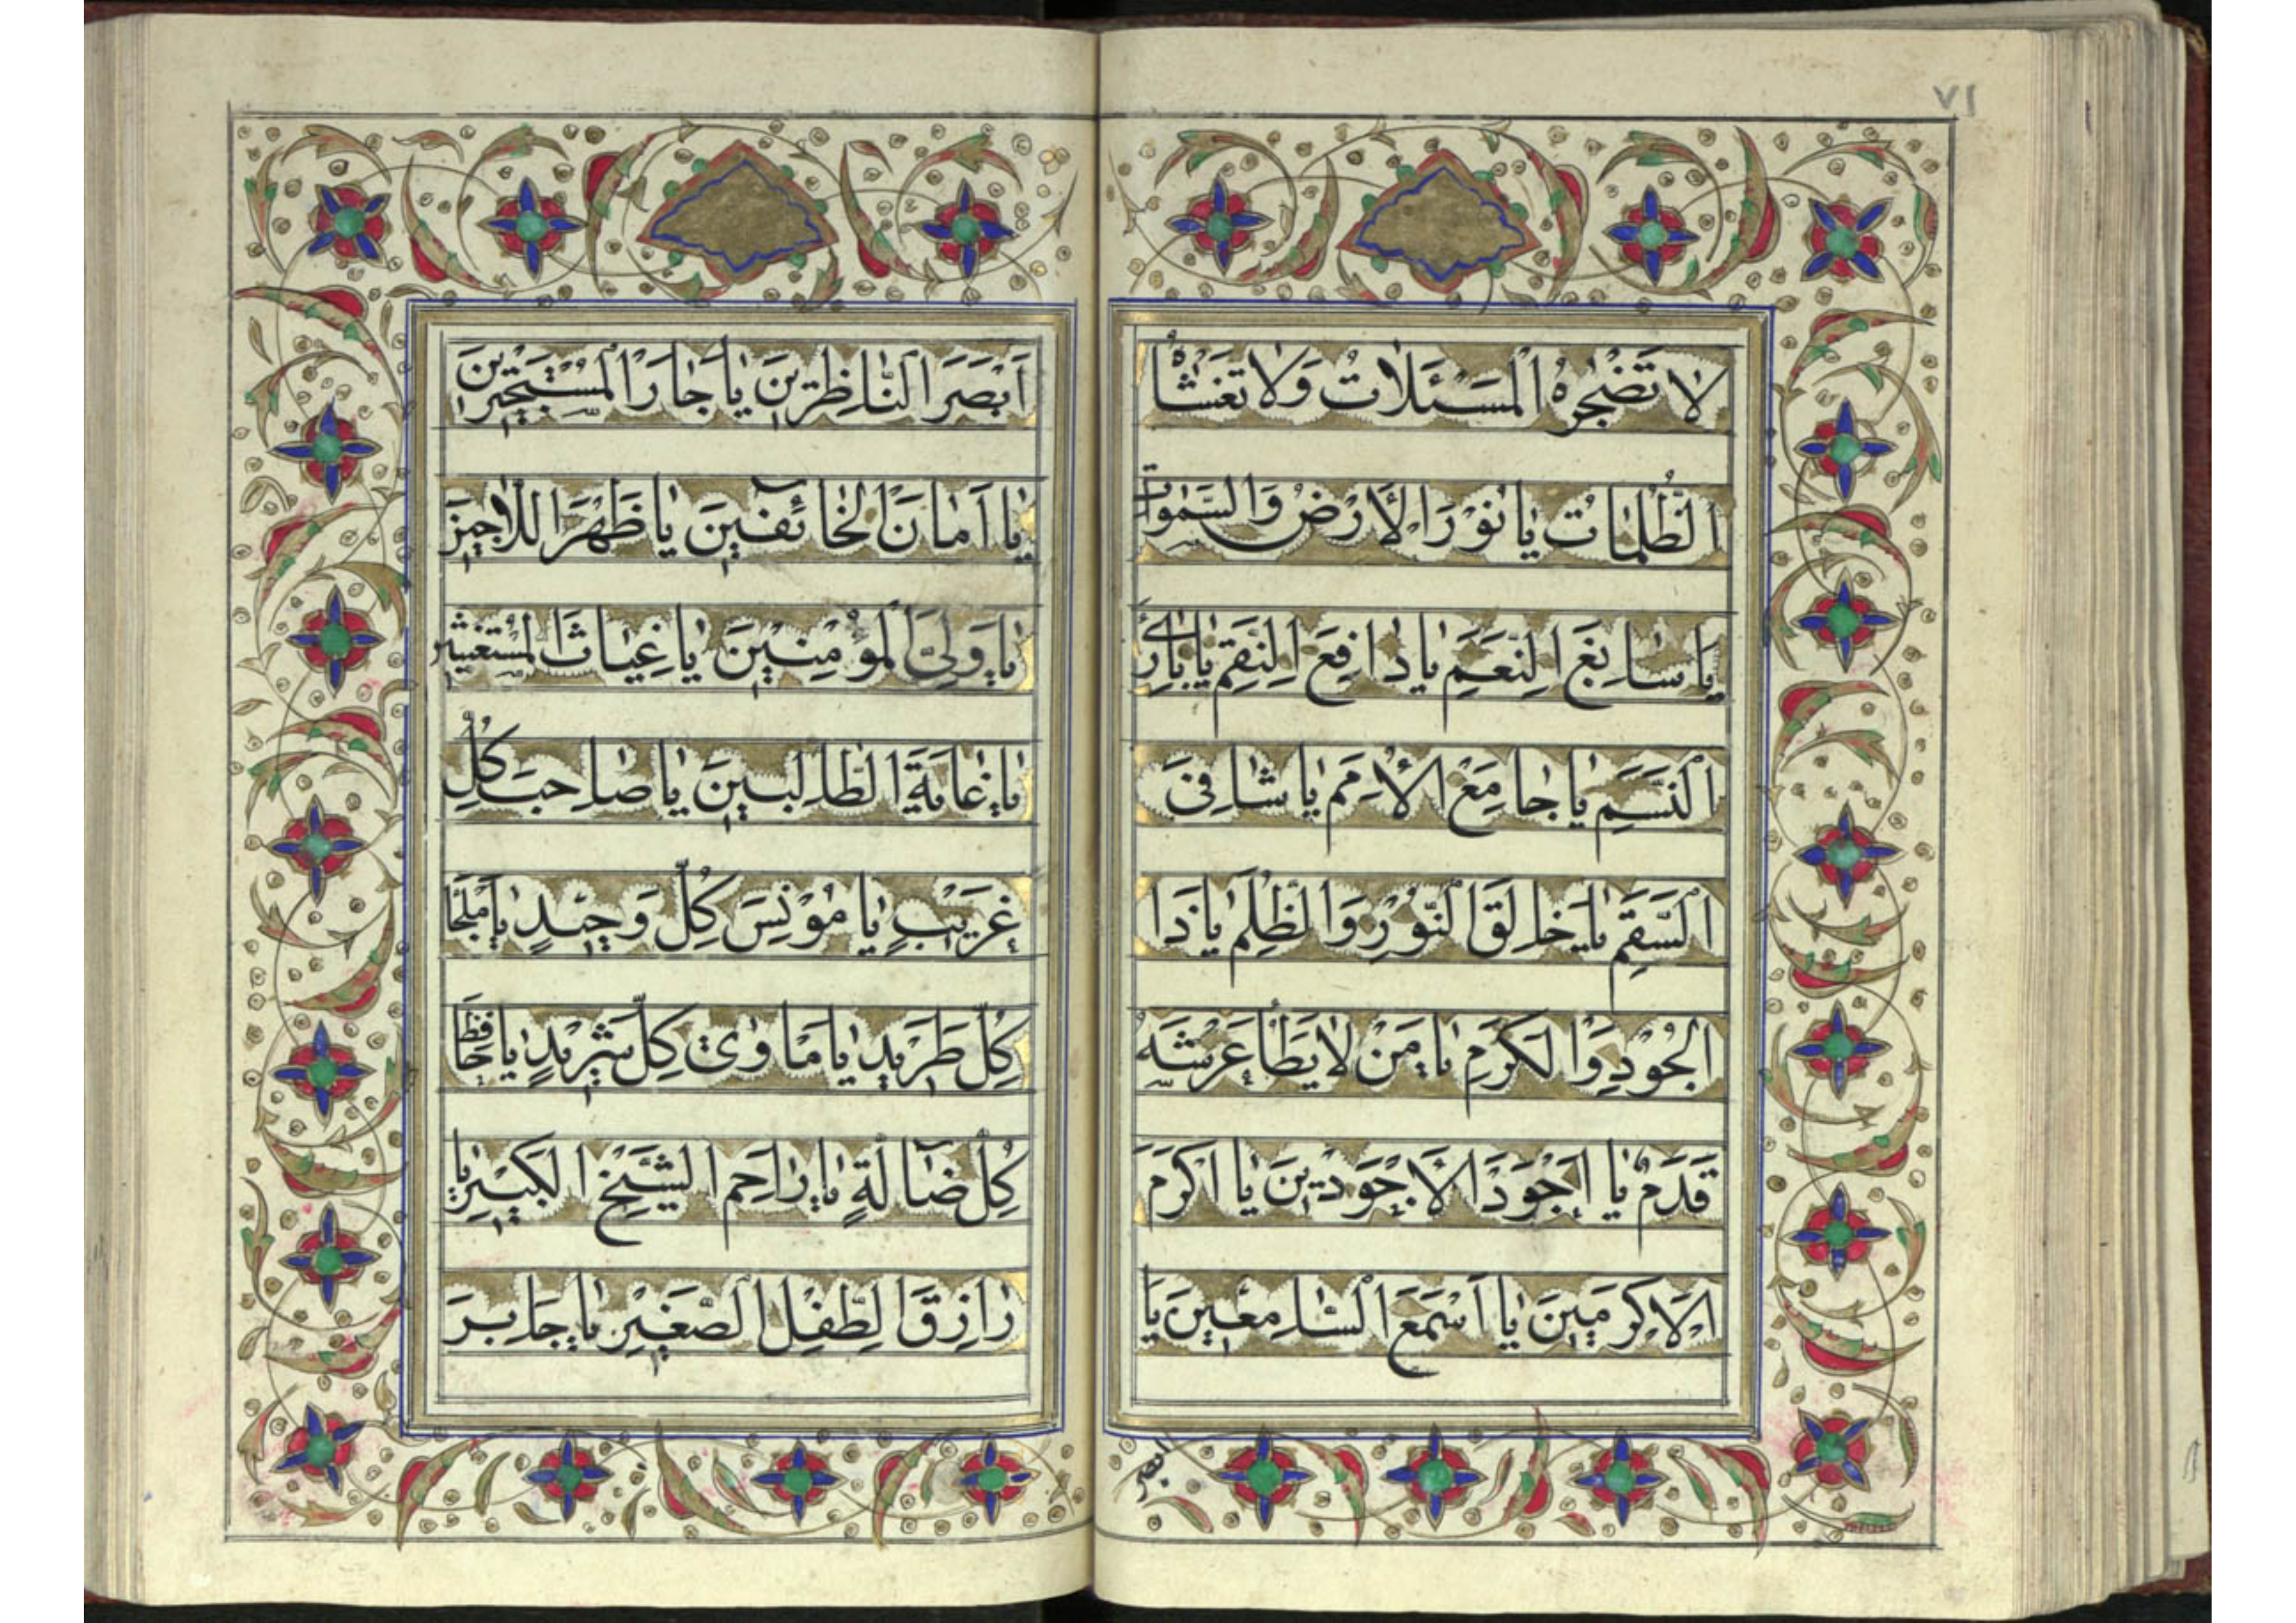 ٧١
لا تَضْجُرُهُ الْمَسْئَلاتُ وَلا تَغْشٰاهُ
الظُّلُمٰاتُ يٰا نُوْرَ الْأَرْضِ وَالسَّمٰوٰاتِ
يٰا سٰابِغَ النِّعَمِ يٰا دٰافِعَ النِّقَمِ يٰا بٰارِئَ
النَّسَمِ يٰا جٰامِعَ الْأُمَمِ يٰا شٰافِىَ
السَّقَمِ يٰا خٰالِقَ النُّوْرِ وَالظُّلَمِ يٰا ذَا
الْجُوْدِ وَالْكَرَمِ يٰا مَنْ لا يَطَأُ عَرْشَهُ
قَدَمٌ يٰا اَجْوَدَ الْاَجْوَدِيْنَ يٰا اَكْرَمَ
الْاَكْرَمِيْنَ يٰا اَسْمَعَ السّٰامِعِيْنَ يٰا
ابصر
اَبْصَرَ النّٰاظِرِيْنَ يٰا جٰارَ الْمُسْتَجِيْرِيْنَ
يٰا اَمٰانَ الْخٰائِفِيْنَ يٰا ظَهْرَ اللّٰاجِيْنَ
يٰا وَلِيَّ الْمُؤْمِنِيْنَ يٰا غِيٰاثَ الْمُسْتَغِيْثِيْنَ
يٰا غٰايَةَ الطّٰالِبِيْنَ يٰا صٰاحِبَ كُلِّ
غَرِيْبٍ يٰا مُوْنِسَ كُلِّ وَحِيْدٍ يٰا مَلْجَأَ
كُلِّ طَرِيْدٍ يٰا مَاْوٰى كُلِّ شَرِيْدٍ يٰا حٰافِظَ
كُلِّ ضٰآلَّةٍ يٰا رٰاحِمَ الشَّيْخِ الْكَبِيْرِ يٰا
رٰازِقَ الطِّفْلِ الصَّغِيْرِ يٰا جٰابِرَ